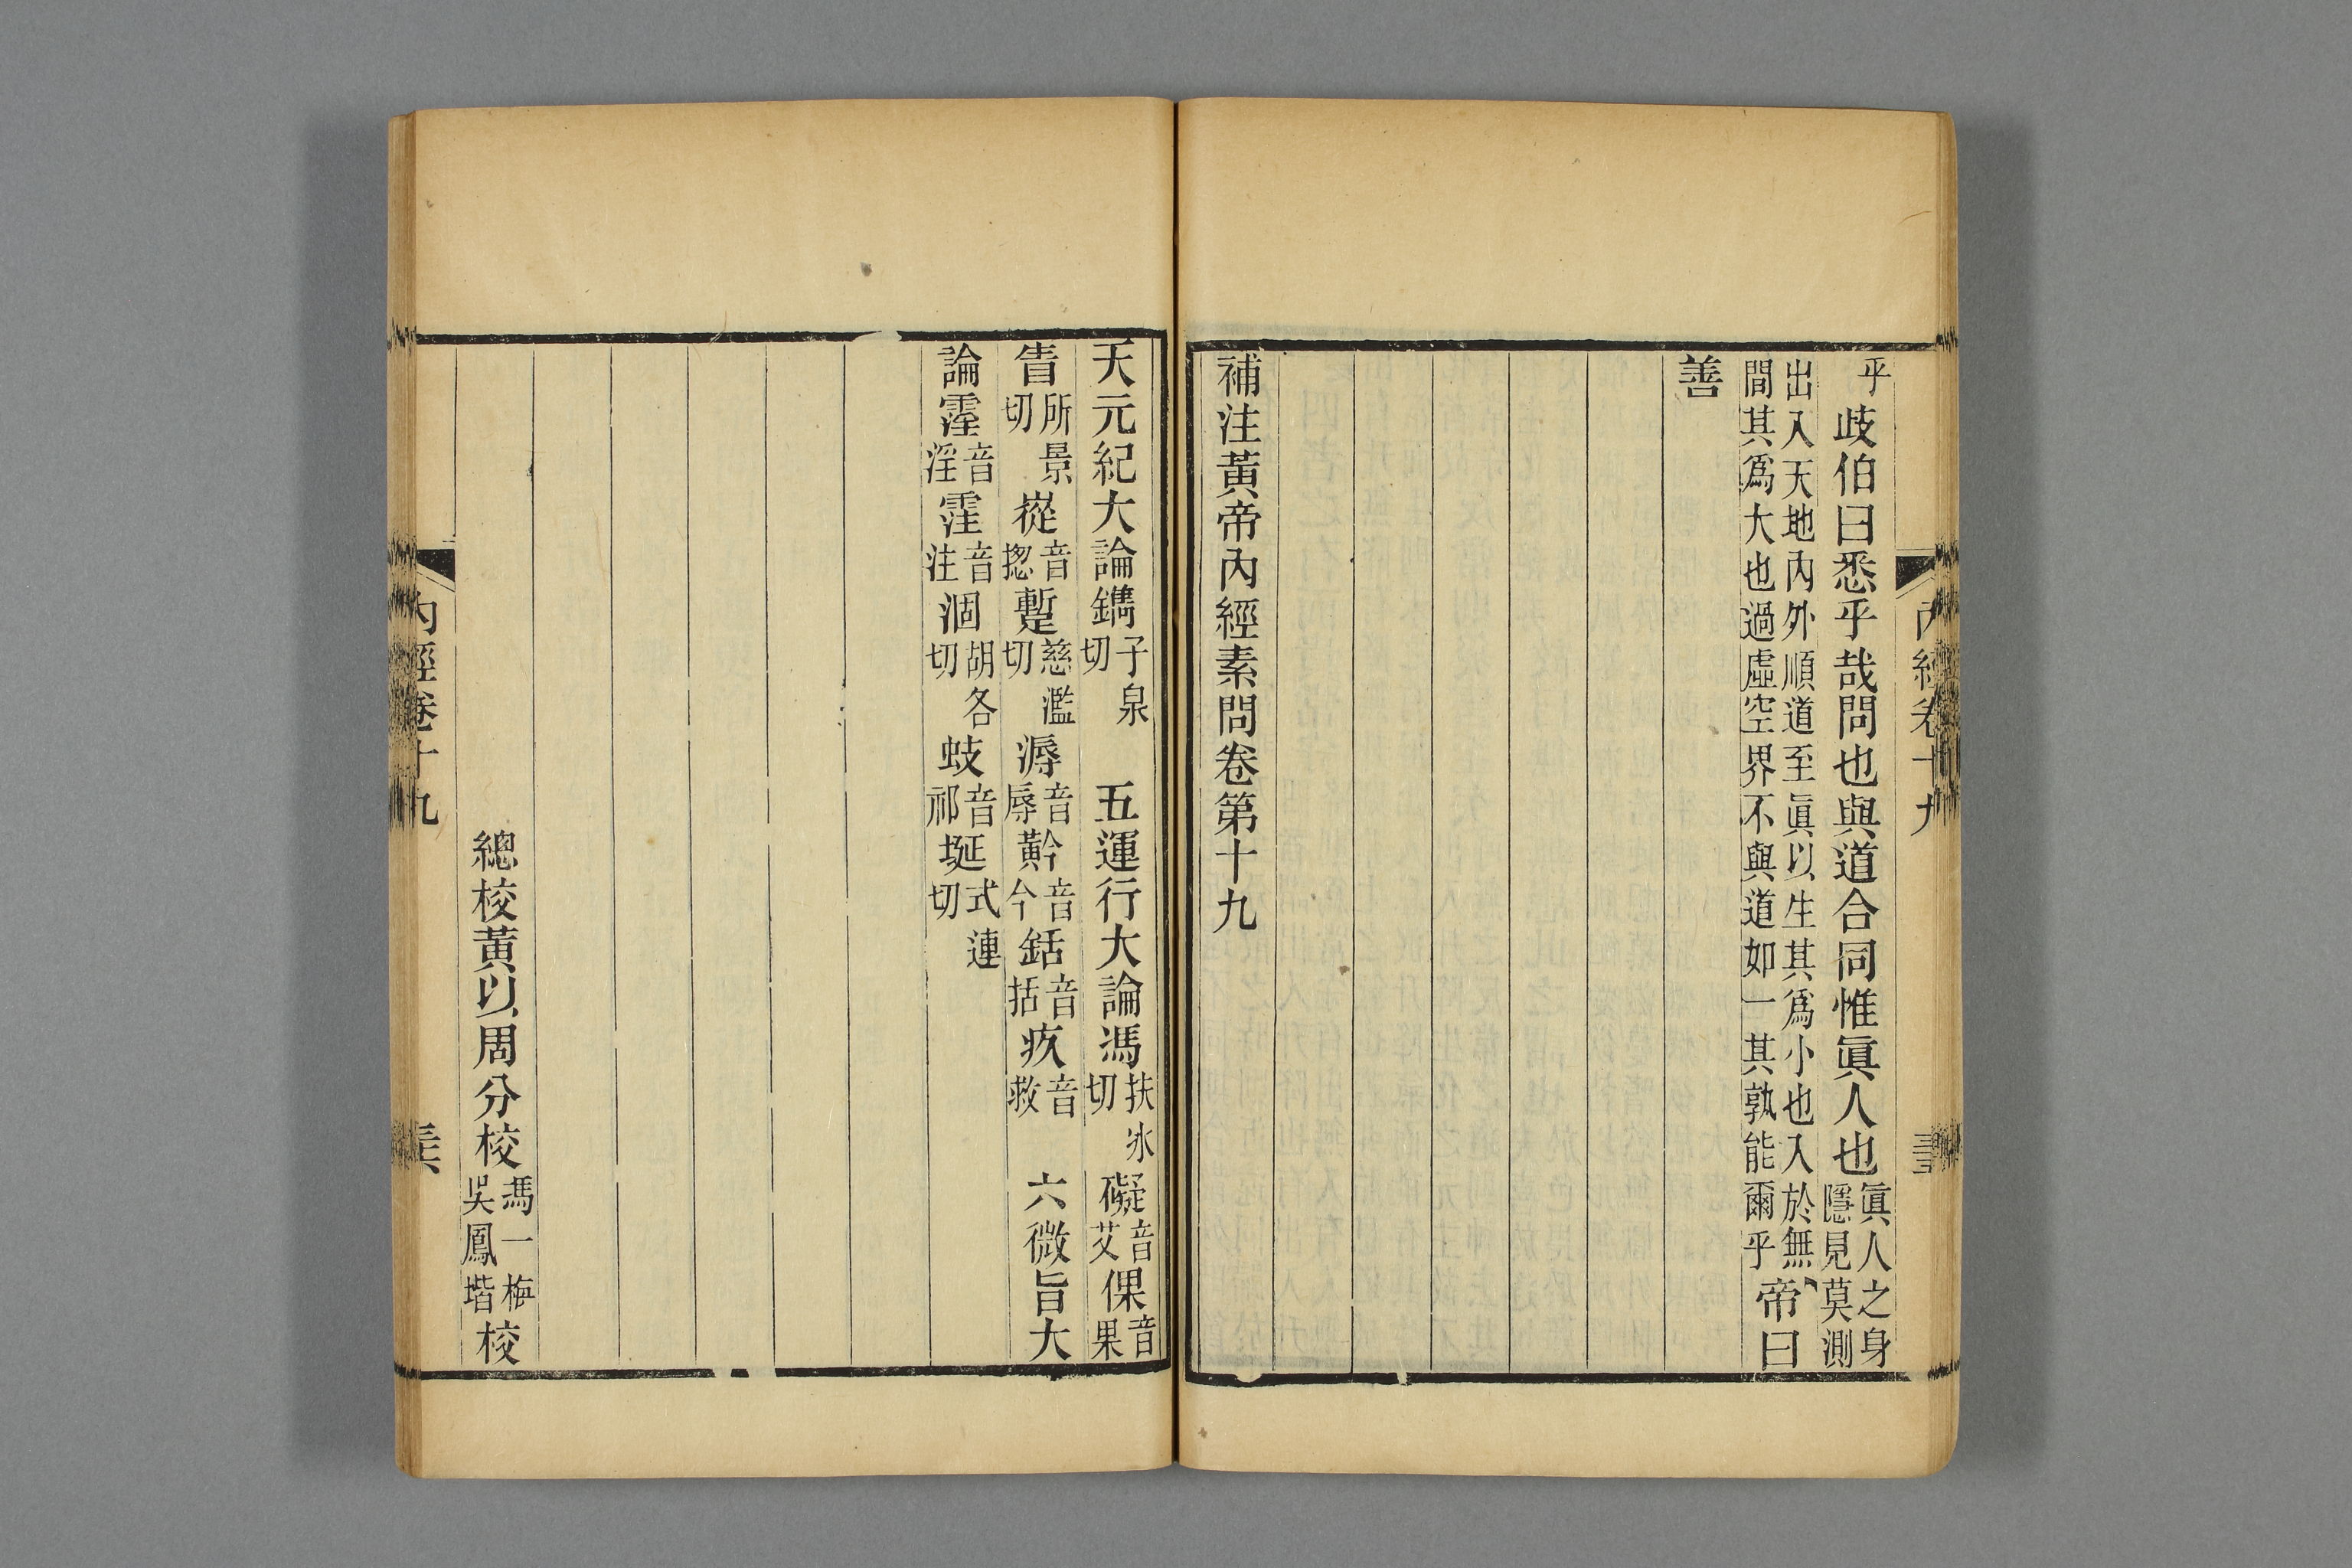 乎歧伯曰悉乎哉問也與道合同惟眞人也眞人之身隱見莫測
出入天地內外順道至眞以生其爲小也入於無
間其爲大也過虛空界不與道如一其孰能爾乎帝曰
善
補注黃帝內經素問卷第十九
天元紀大論鐫子泉切 五運行大論馮扶冰切礙音艾倮音果
眚所景切嵸音揔蹔慈濫切溽音辱黅音今銛音括疚音救 六微旨大
論霪音淫霔音注涸胡各切蚑音祁埏式連切
總校黃以周分校馮一梅吳鳳堦校
內經卷十九